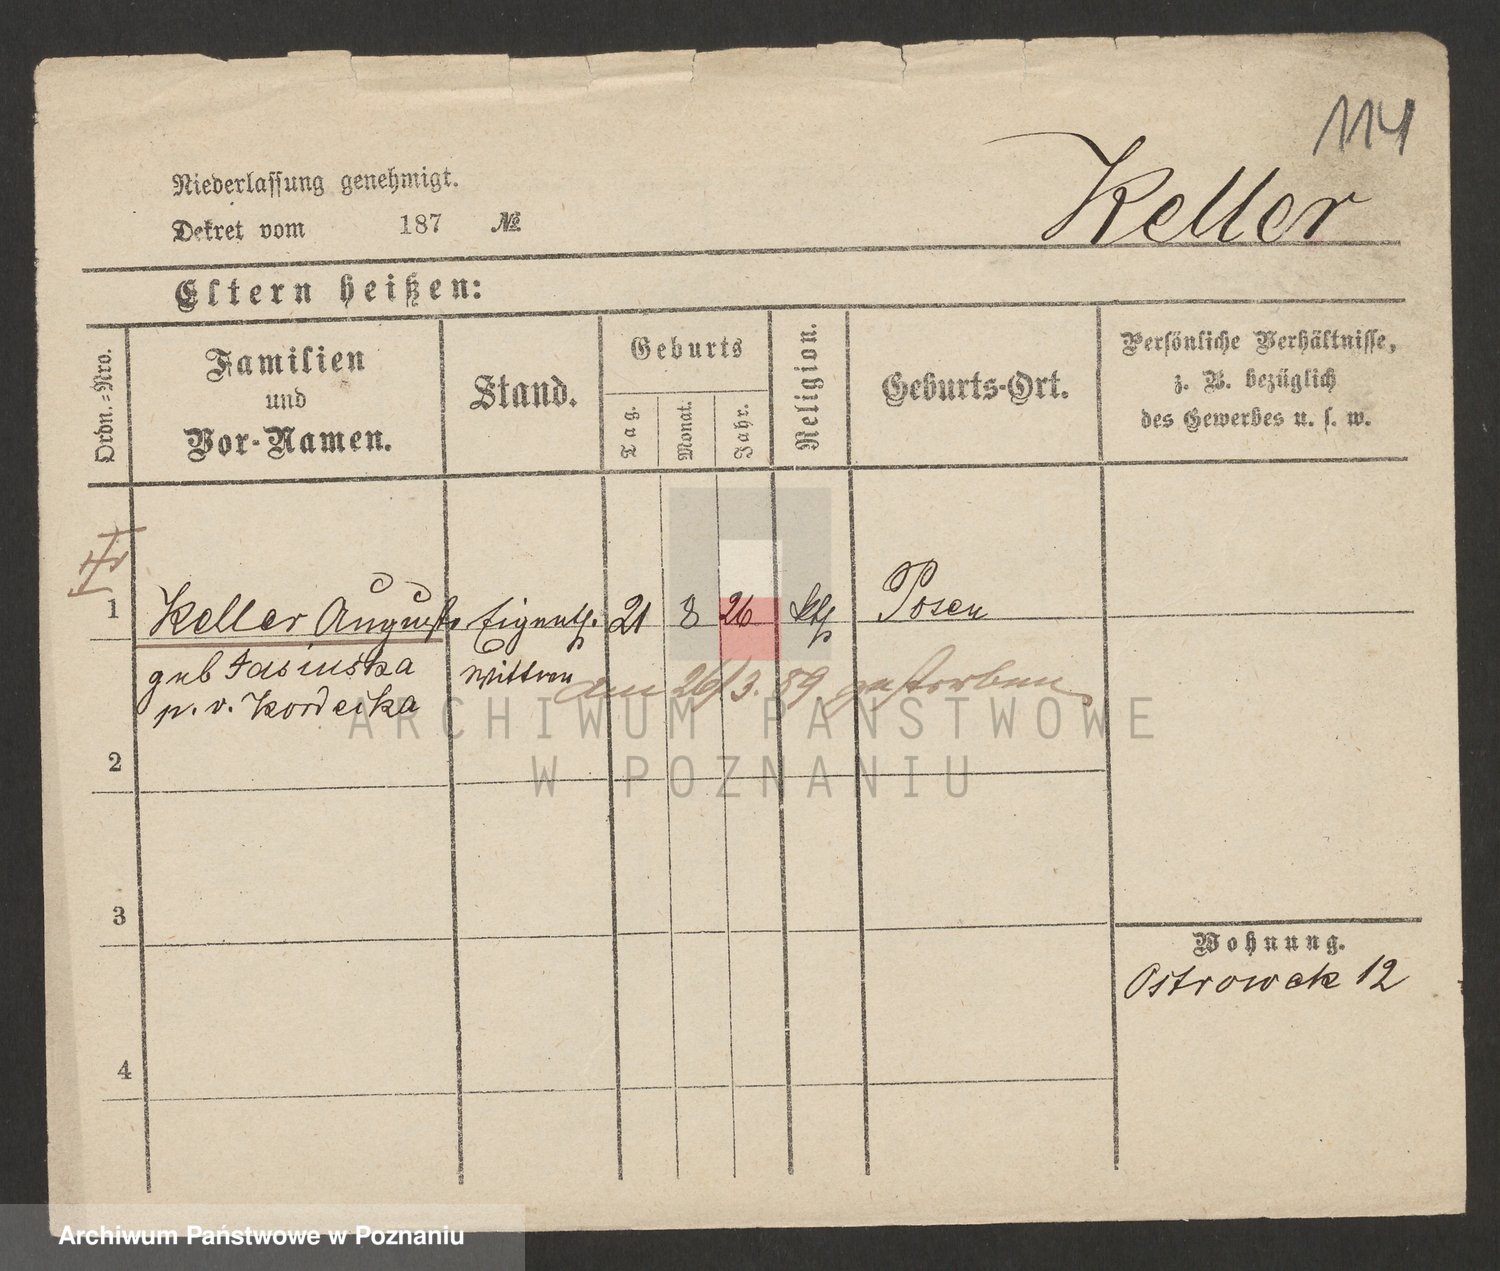 114
Keller
Niederlassung genehmigt.
Dekret vom 187 №
Eltern heißen:
Ordn.=Nro.
Familien
und
Vor-Namen.
Stand.
Geburts
Tag.
Monat.
Jahr.
Religion.
Geburts-Ort.
Persönliche Verhältnisse,
z. B. bezüglich
des Gewerbes u. s. w.
1 Keller Auguste Eigenth. 21 8 26 kth Posen
geb Jasinska Wittwe am 26/3. 89 gestorben
p. v. Kordecka
2
3
4
Wohnung.
Ostrowek 12
ARCHIWUM PAŃSTWOWE
W POZNANIU
Archiwum Państwowe w Poznaniu